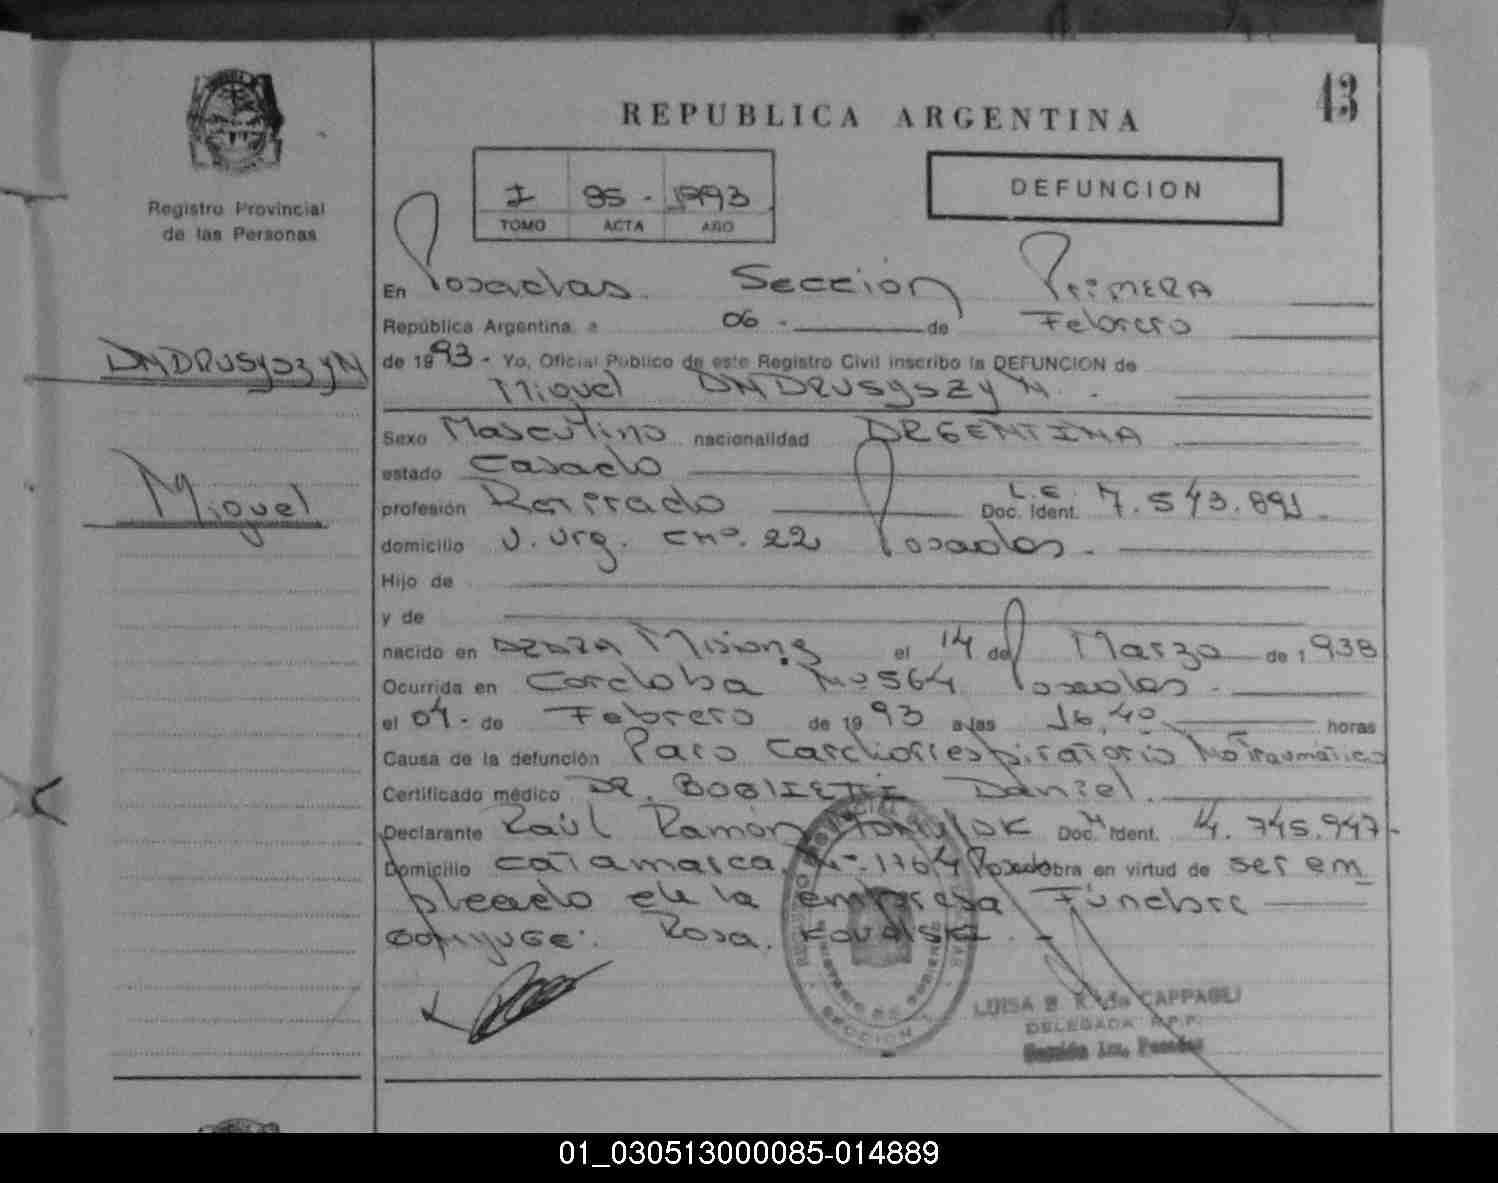 43
REPUBLICA ARGENTINA
I 85 - 1993
TOMO ACTA AÑO
DEFUNCION
Registro Provincial
de las Personas
En Posadas Sección Primera
República Argentina a 06 - de Febrero
de 1993 - Yo, Oficial Público de este Registro Civil inscribo la DEFUNCION de
Miguel ANDRUSYSZYN.
ANDRUSYSZYN
Miguel
Sexo Masculino nacionalidad ARGENTINA
estado Casado
profesión Retirado Doc. Ident. L.E. 7.543.891
domicilio V. Urg. CH nº. 22 Posadas.
Hijo de
y de
nacido en AZARA Misiones el 14 de Marzo de 1938
Ocurrida en Cordoba Nº 564 Posadas -
el 04 - de Febrero de 1993 a las 16,40 horas
Causa de la defunción Paro Cardiorrespiratorio No Traumático
Certificado médico DR. BOGLIETTI Daniel.
Declarante Raúl Ramón Doc. Ident. M 4.745.947-
Domicilio Catamarca Nº. 1764 Posadas obra en virtud de ser em
pleado de la empresa Fúnebre
CONYUGE: Rosa. KOVALSKI. -
LUISA B. R. de CAPPAGLI
DELEGADA R.P.P.
Sección 1ra. Posadas
SECCION 1
01_030513000085-014889